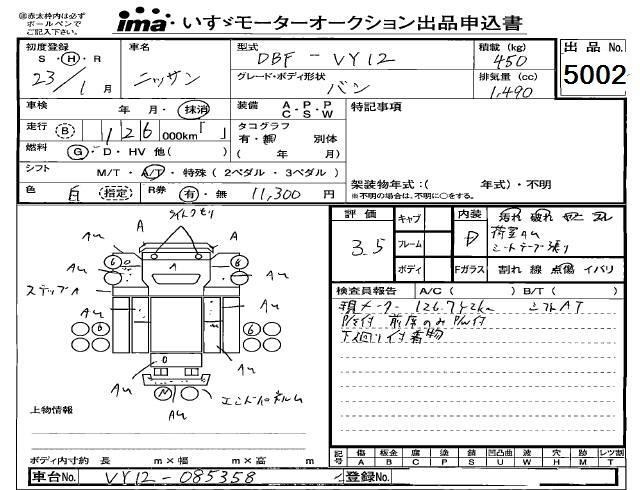 ※赤太枠内は必ず
ボールペンで
ご記入下さい。
ima・いすゞモーターオークション出品申込書
初度登録 車名 型式 積載(kg) 出品No.
S・H・R DBF-VY12 450
23/1月 ニッサン グレード・ボディ形状 排気量(cc) 5002
バン 1,490
車検 年 月・抹消 装備 A・P・P 特記事項
C・S・W
走行 B 126 000km「 」 タコグラフ
有・無 別体
燃料 G・D・HV 他( ) ( 年 月)
シフト M/T・A/T・特殊(2ペダル・3ペダル) 架装物年式:( 年式)・不明
色 白 指定 R券 有・無 11,300円 ※不明の場合は、不明に○をする。
ライトクモリ 評価 キャブ 内装 汚れ 破れ
A A 3.5 フレーム D 荷室AU
AU AU シートテープ張り
ボディ Fガラス 割れ 線 点傷 イバリ
ステップA 検査員報告 A/C( ) B/T( )
現メーター 126,742km シフトAT
P/S付 前席のみP/W付
下回り付着物
AU AU
AU エンドパネルU
上物情報
記号 傷 板金 腐 塗 錆 凹凸曲 波 穴 跡 レツ割
A B C P S U W H M T
ボディ内寸約 長 m×幅 m×高 m
車台No. VY12-085358 登録No.